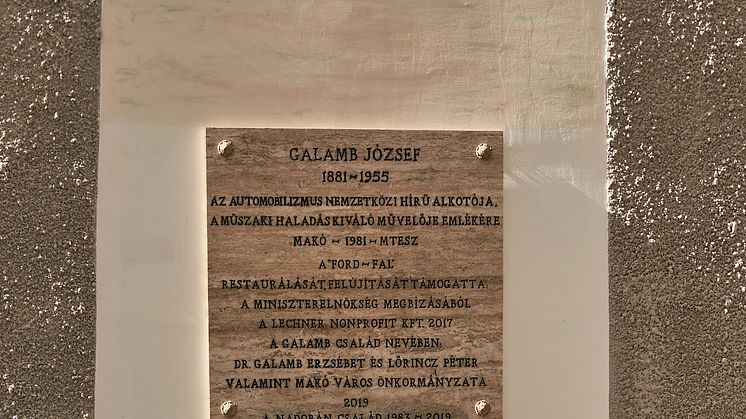 GALAMB JÓZSEF
1881-1955
AZ AUTOMOBILIZMUS NEMZETKÖZI HÍRŰ ALKOTÓJA,
A MŰSZAKI HALADÁS KIVÁLÓ MŰVELŐJE EMLÉKÉRE
MAKÓ - 1981 - MTESZ
A "FORD-FAL"
RESTAURÁLÁSÁT, FELÚJÍTÁSÁT TÁMOGATTA:
A MINISZTERELNÖKSÉG MEGBÍZÁSÁBÓL
A LECHNER NONPROFIT KFT. 2017
A GALAMB CSALÁD NEVÉBEN:
DR. GALAMB ERZSÉBET ÉS LŐRINCZ PÉTER
VALAMINT MAKÓ VÁROS ÖNKORMÁNYZATA
2019
A NÁDOBÁN CSALÁD 1983-2019